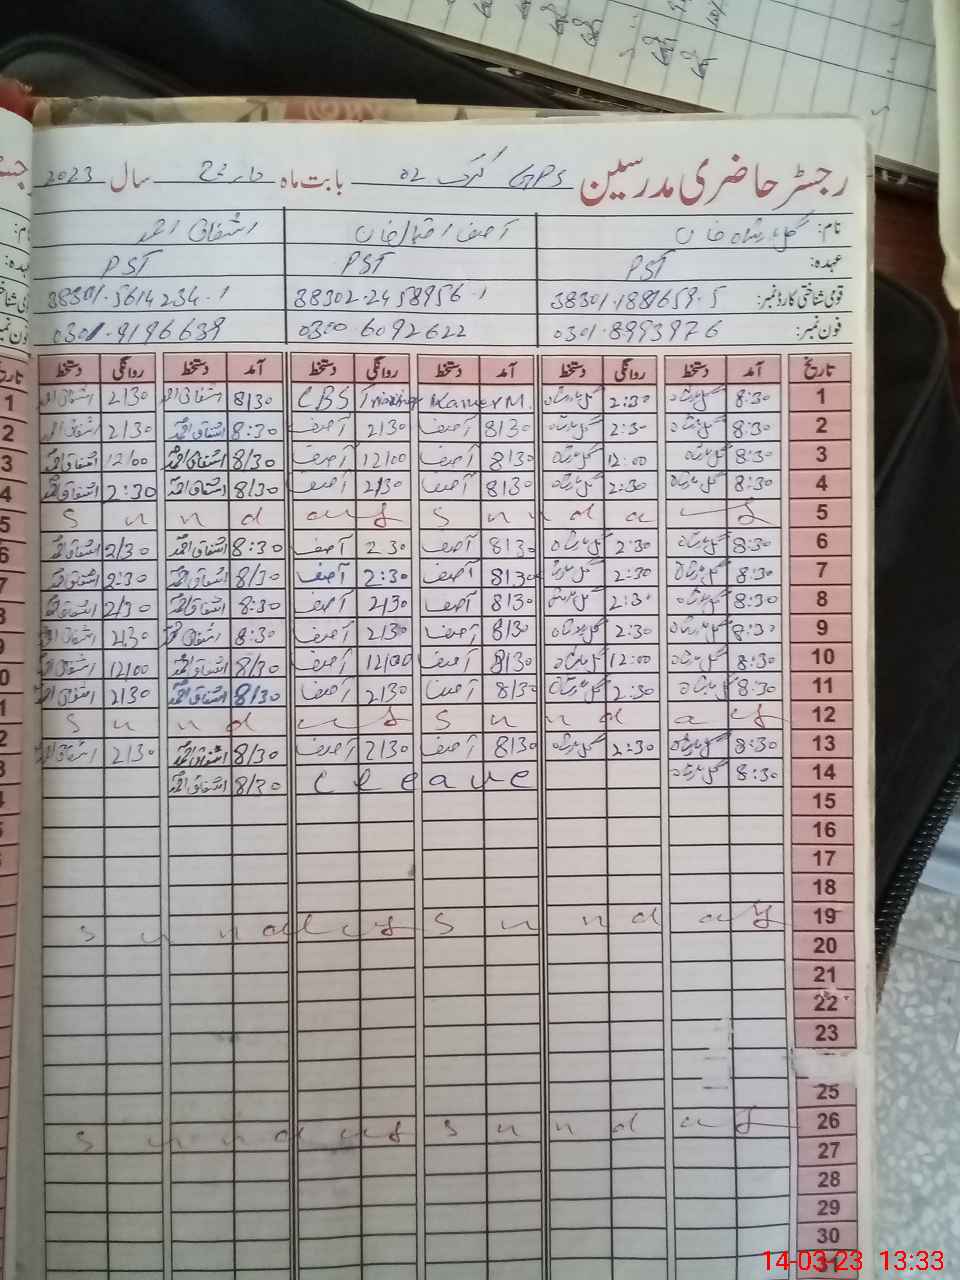 رجسٹر حاضری مدرسین GPS 02 بابت ماہ مارچ سال 2023
نام: گل بادشاہ خان آصف اقبال خان اشفاق احمد
عہدہ: PST PST PST
قومی شناختی کارڈ نمبر: 38301-1881659-5 38302-2458956-1 38301-5614234-1
فون نمبر: 0301-8993976 0300-6092622 0301-9196639
تاریخ آمد دستخط روانگی دستخط آمد دستخط روانگی دستخط آمد دستخط روانگی دستخط
1 8:30 گل بادشاہ 2:30 گل بادشاہ CBS Training 8/30 اشفاق احمد 2/30 اشفاق احمد
2 8:30 گل بادشاہ 2:30 گل بادشاہ 8/30 آصف 2/30 آصف 8:30 اشفاق احمد 2/30 اشفاق احمد
3 8:30 گل بادشاہ 12:00 گل بادشاہ 8/30 آصف 12/00 آصف 8/30 اشفاق احمد 12/00 اشفاق احمد
4 8:30 گل بادشاہ 2:30 گل بادشاہ 8/30 آصف 2/30 آصف 8/30 اشفاق احمد 2:30 اشفاق احمد
5 S u n d a y S u n d a y
6 8:30 گل بادشاہ 2:30 گل بادشاہ 8/30 آصف 2 30 آصف 8:30 اشفاق احمد 2/30 اشفاق احمد
7 8:30 گل بادشاہ 2:30 گل بادشاہ 8/30 آصف 2:30 آصف 8/30 اشفاق احمد 2:30 اشفاق احمد
8 8:30 گل بادشاہ 2:30 گل بادشاہ 8/30 آصف 2/30 آصف 8:30 اشفاق احمد 2/30 اشفاق احمد
9 8:30 گل بادشاہ 2:30 گل بادشاہ 8/30 آصف 2/30 آصف 8:30 اشفاق احمد 2/30 اشفاق احمد
10 8:30 گل بادشاہ 12:00 گل بادشاہ 8/30 آصف 12/00 آصف 8/30 اشفاق احمد 12/00 اشفاق احمد
11 8:30 گل بادشاہ 2:30 گل بادشاہ 8/30 آصف 2/30 آصف 8/30 اشفاق احمد 2/30 اشفاق احمد
12 S u n d a y S u n d a y
13 8:30 گل بادشاہ 2:30 گل بادشاہ 8/30 آصف 2/30 آصف 8/30 اشفاق احمد 2/30 اشفاق احمد
14 8:30 گل بادشاہ C leave 8/30 اشفاق احمد
15
16
17
18
19 S u n d a y S u n d a y
20
21
22
23
25
26 S u n d a y S u n d a y
27
28
29
30
31
14-03-23 13:33